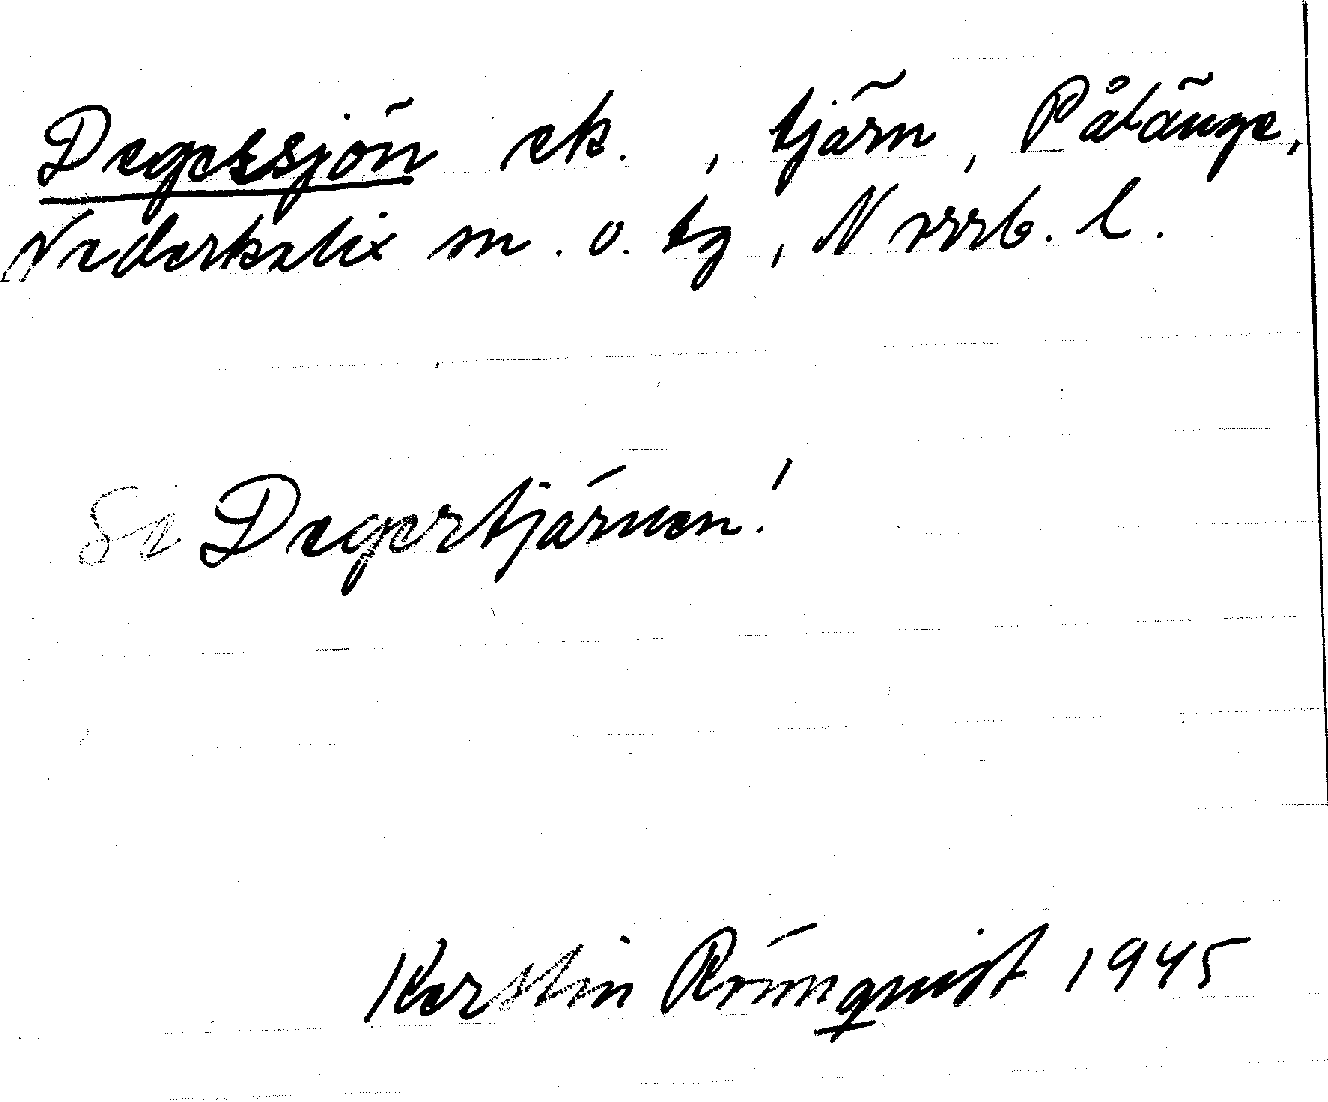 Degessjön ek., tjärn, Påtänge,
Nederkalix sn. o. tg, Norrb. l.
Se Degertjärnen!
Kerstin Rönnquist 1945